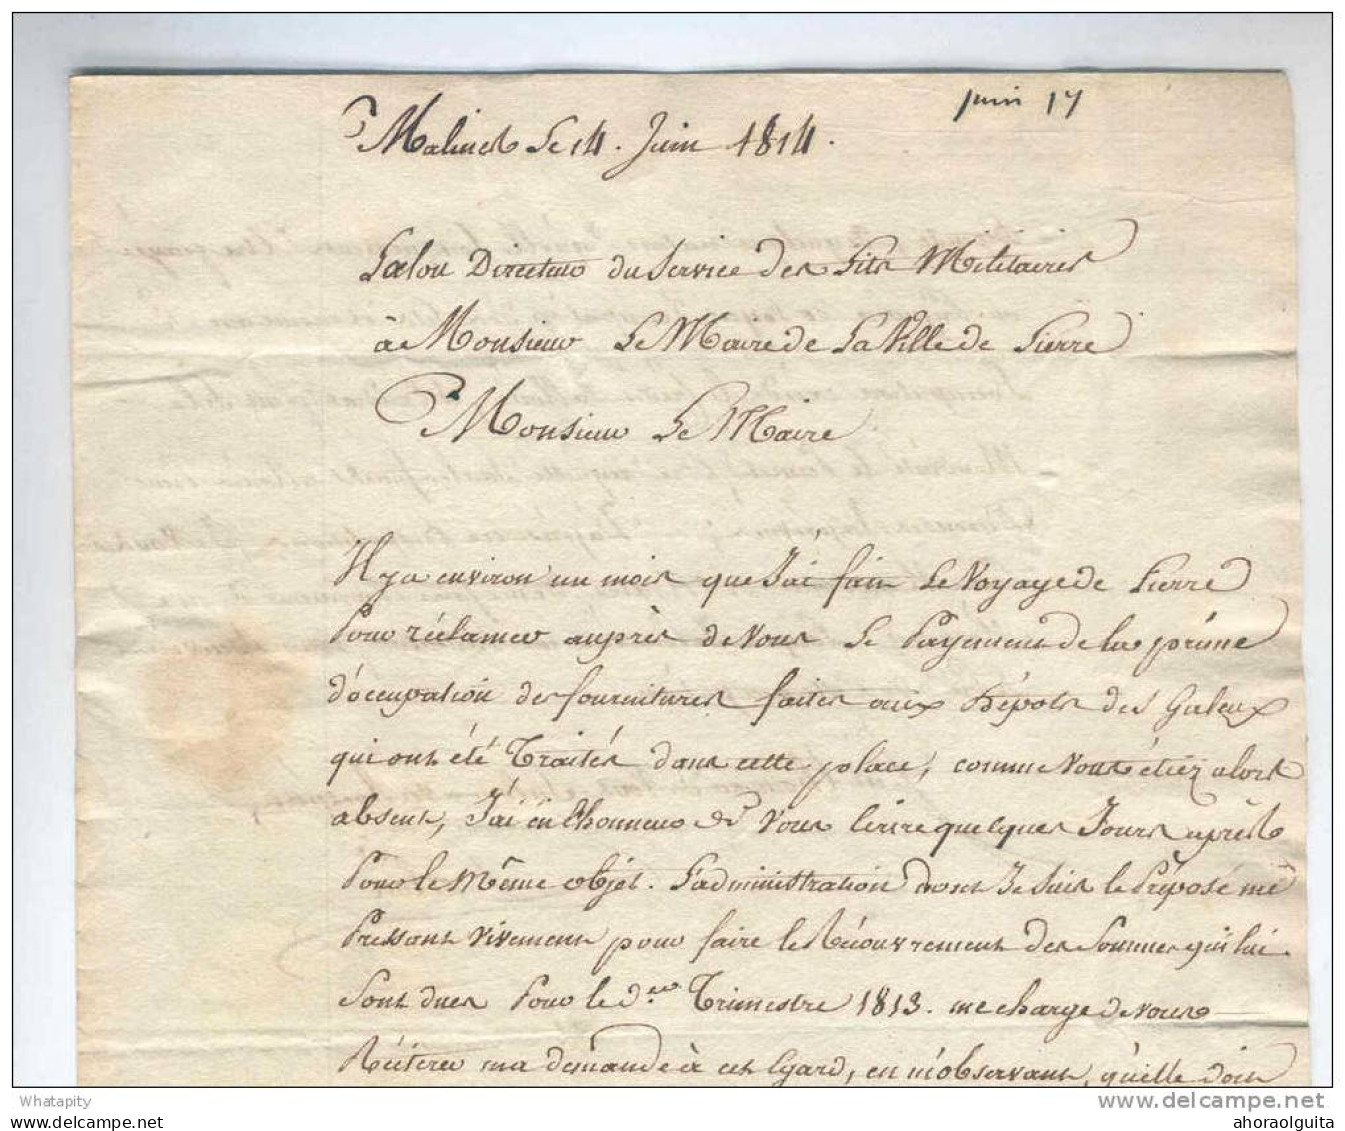 juin 17
Malines Le 14. Juin 1814.
Directeur du Service des Lits Militaires
à Monsieur Le Maire de La Ville de Lierre
Monsieur Le Maire
Il y a environ un mois que J'ai fait Le Voyage de Lierre
Pour réclamer auprès de Vous Le Payement de la prime
d'occupation des fournitures faites aux Dépots des Galeux
qui ont été Traités dans cette place, comme Vous étiez alors
absent, J'ai eû L'honneur de Vous écrire quelques Jours après
Pour le Même objet. L'administration dont Je Suis le Préposé me
Pressant vivement pour faire le Récouvrement des Sommes qui lui
Sont dues Pour le d.er Trimestre 1813. me charge de vous
Réiterer ma demande à cet Egard, en m'observant, qu'elle doit
Whatapity
www.delcampe.net
my.delcampe.com
ahoraolguita